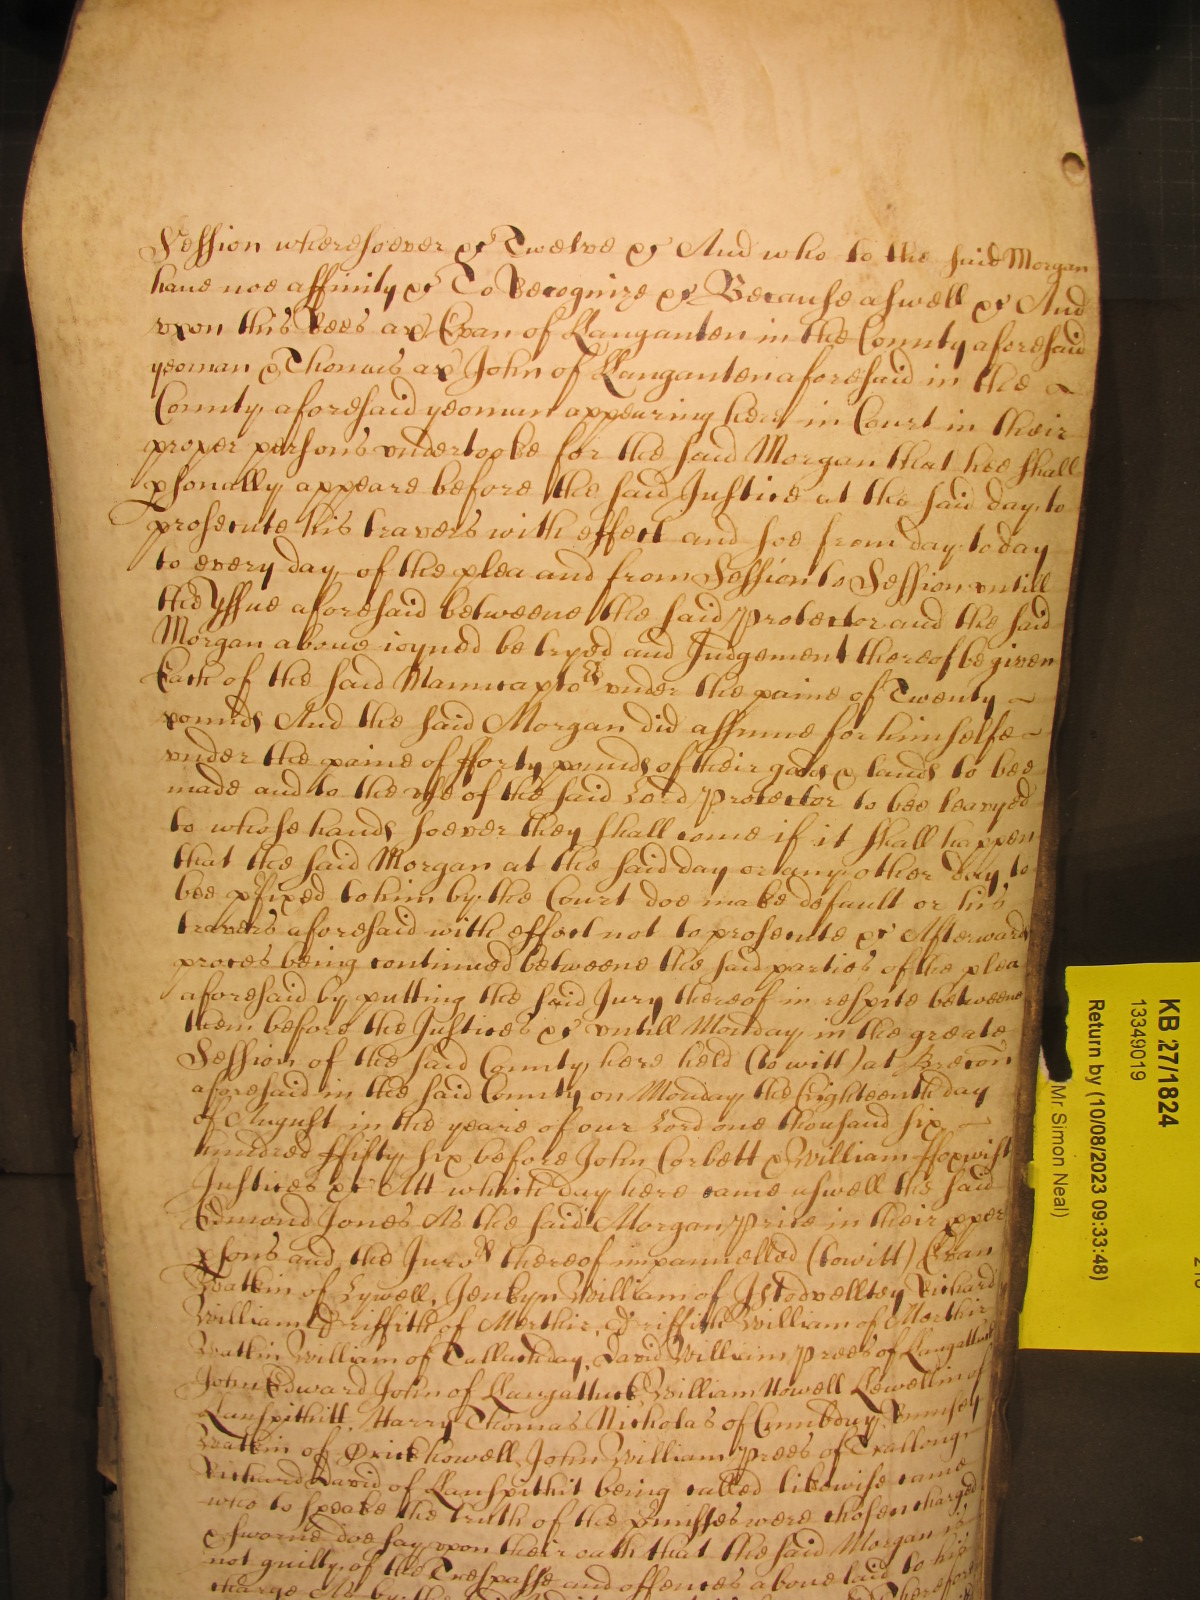 Session wheresoever &c Twelve &c And who to the said Morgan
have noe affinity &c To Recognize &c Because aswell &c And
vpon this Rees ap Evan of Llanganten in the County aforesaid
yeoman & Thomas ap John of Llanganten aforesaid in the
County aforesaid yeoman appearing here in Court in their
proper persons vndertooke for the said Morgan that hee shall
psonally appeare before the said Justice at the said day to
prosecute his travers with effect and soe from day to day
to every day of the plea and from Session to Session vntill
the Yssue aforesaid betweene the said Protector and the said
Morgan aboue ioyned be tryed and Judgement thereof be given
Each of the said Manucaptors vnder the paine of Twenty
pounds And the said Morgan did assume for himselfe
vnder the paine of fforty pounds of their goods & lands to bee
made and to the vse of the said Lord Protector to bee leavyed
to whose hands soever they shall come if it shall happen
that the said Morgan at the said day or any other day to
bee pfixed to him by the Court doe make default or his
travers aforesaid with effect not to prosecute &c Afterwards
proces being continued betweene the said parties of the plea
aforesaid by putting the said Jury thereof in respite betweene
them before the Justices &c vntill Monday in the greate
Session of the said County here held (to witt) at Brecon
aforesaid in the said County on Monday the Eighteenth day
of August in the yeare of our Lord one thousand six
hundred ffifty six before John Corbett & William ffoxwist
Justices &c Att which day here came aswell the said
Edmond Jones As the said Morgan Price in their pper
psons and the Jurors thereof impannelled (to witt) Evan
Watkin of Lywell, Jenkyn William of Istradvelltey Richard
William Griffith of Merthir, Griffith William of Merthir
Watkin William of Tallachday, David William Prees of Llangattuck
John Edward John of Llangattuck William Howell Llewellin of
Llanspithitt, Harry Thomas Nicholas of Cumbdwy,
Watkin of Crickhowell, John William Prees of Trallong,
Richard David of Llanspithit being called likewise came
who to speake the truth of the pmisses were chosen charged
& sworne doe say vpon their oath that the said Morgan is
not guilty of the Trespasse and offences aboue laid to his
charge As by the
KB 27/1824
13349019
Return by (10/08/2023 09:33:48)
Mr Simon Neal)